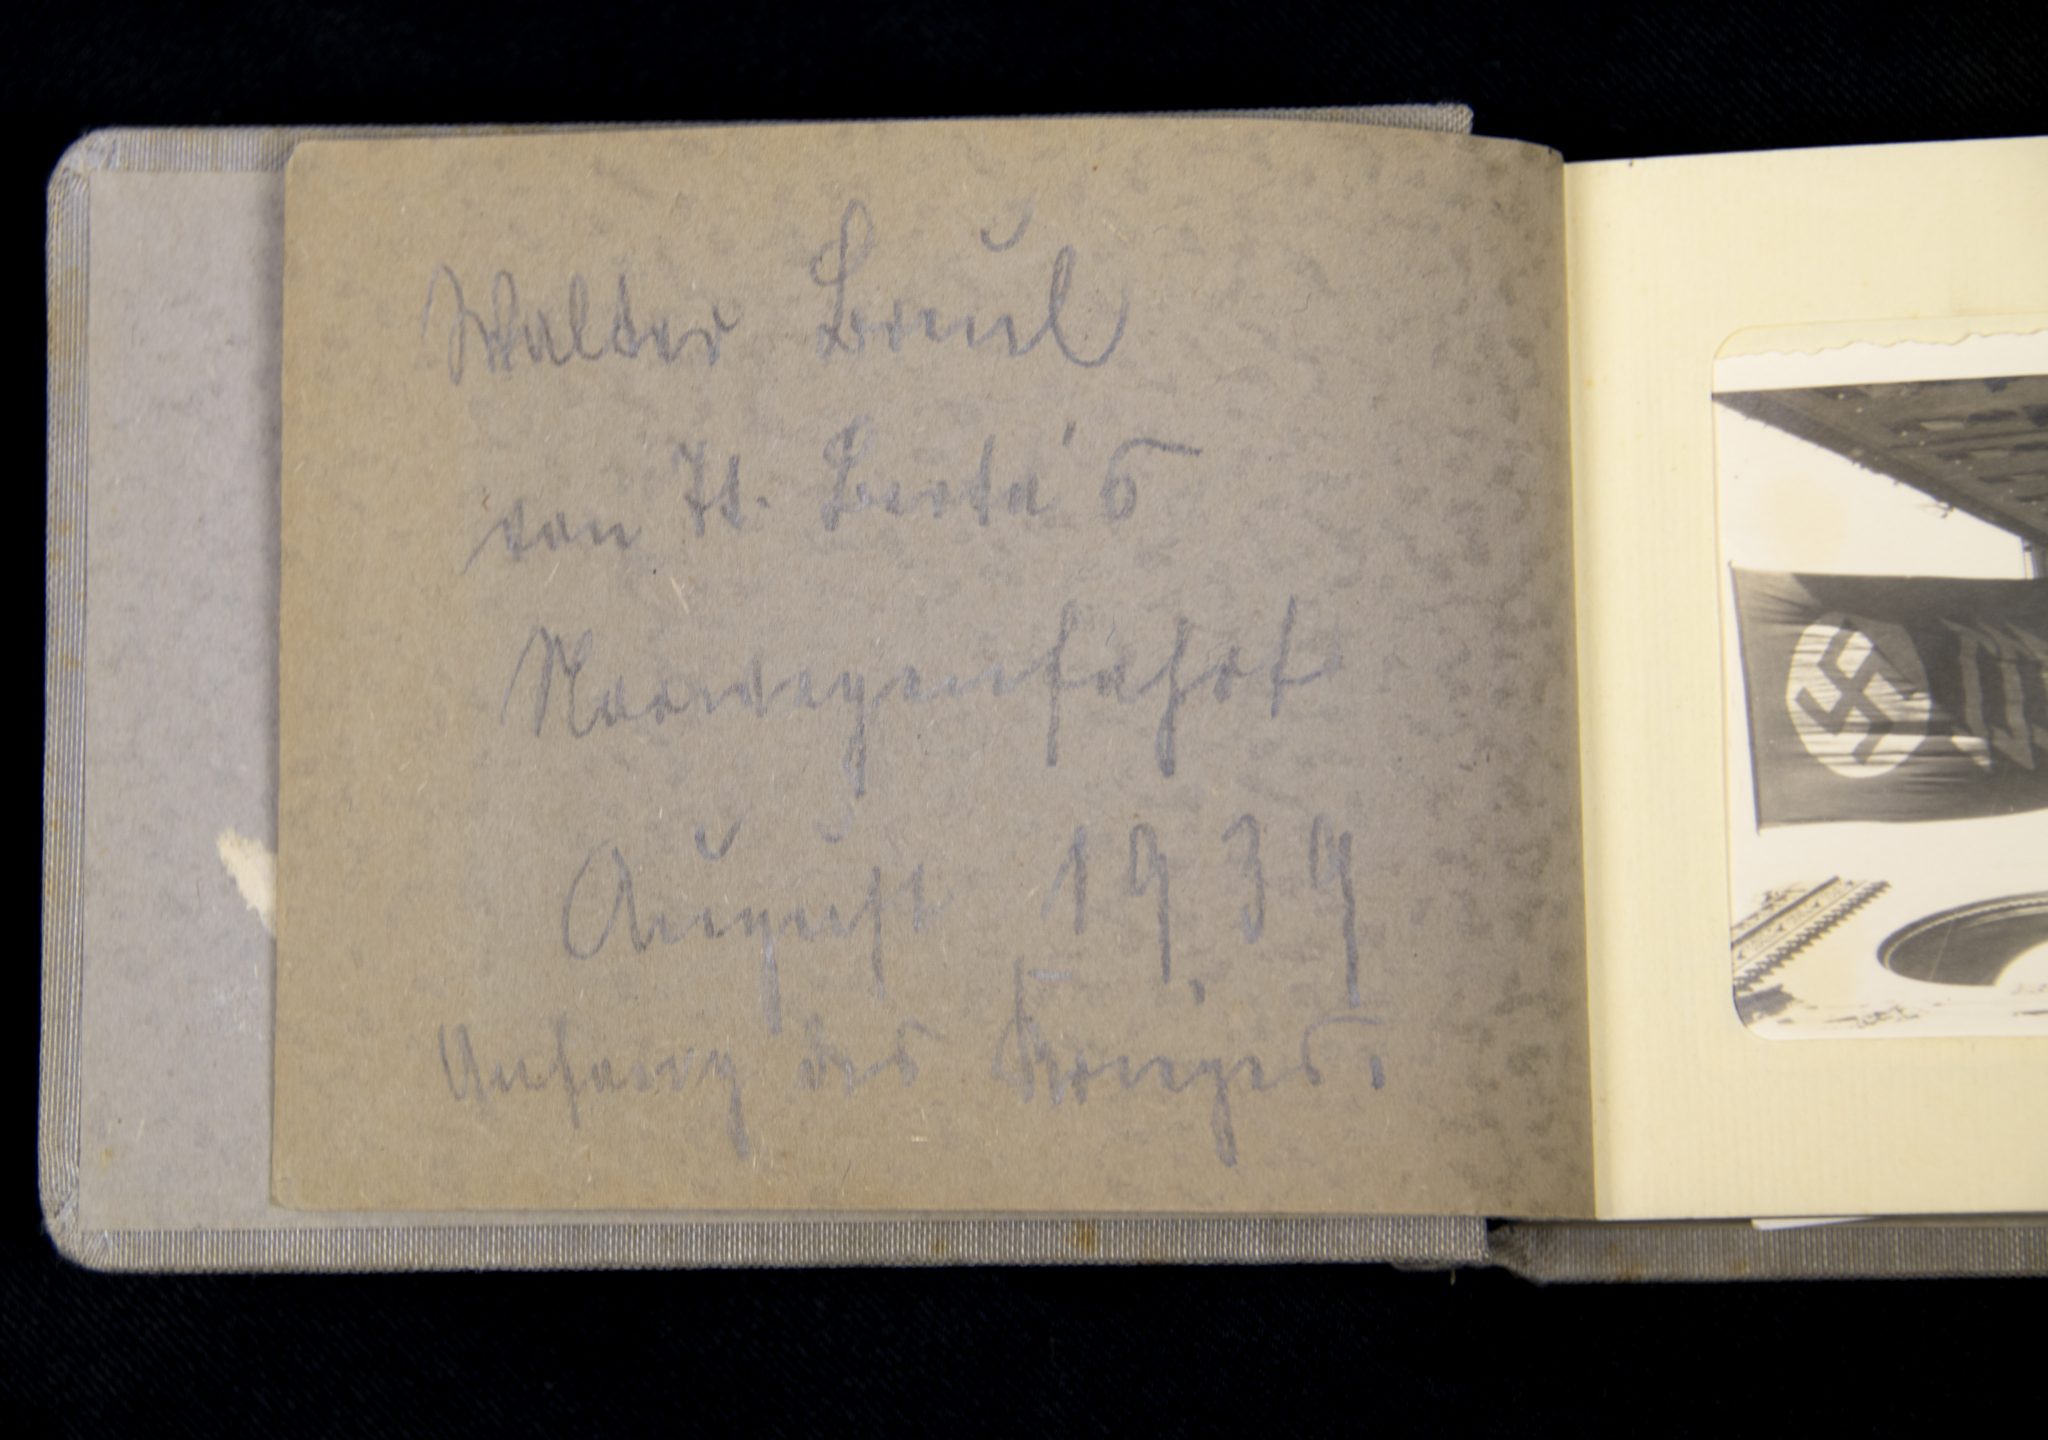 Walter Breul
von Tt. Berta's
Norwegenfahrt
August 1939
Anfang des Krieges.